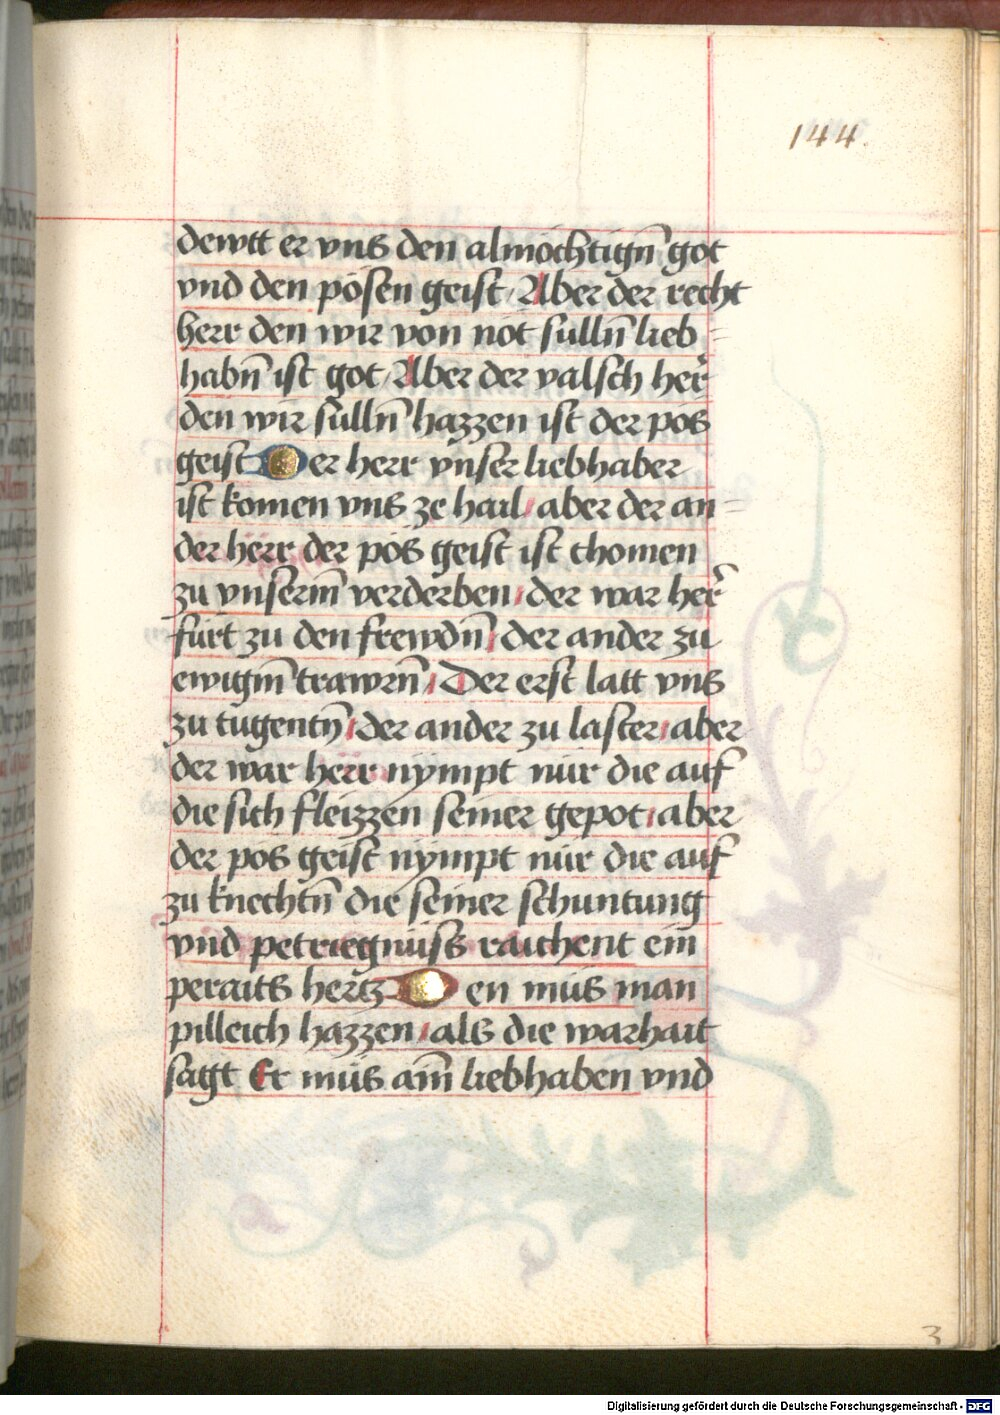 144.
dewtt er vns den almöchtign̄ got
vnd den pösen geist / Aber der recht
herr den wir von not sulln̄ lieb=
habn̄ ist got / Aber der valsch her̄
den wir sulln̄ hazzen ist der pos
geist Der herr vnser liebhaber
ist komen vns ze hail / aber der an=
der herr der pös geist ist chomen
zu vnserm̄ verderben / der war her̄
fürt zu den frewdn̄ / der ander zu
ewigm̄ trawrn̄ / Der erst latt vns
zu tugentn̄ / der ander zu laster / aber
der war herr nÿmpt nür die auf
die sich fleizzen seiner gepot / aber
der pös geist nÿmpt nür die auf
zu knechtn̄ die seiner schuntung
vnd petriegnüss raichent ein
peraits hertz Den müs man
pilleich hazzen / als die warhait
sagt Er müs aim̄ liebhaben vnd
3
Digitalisierung gefördert durch die Deutsche Forschungsgemeinschaft - DFG